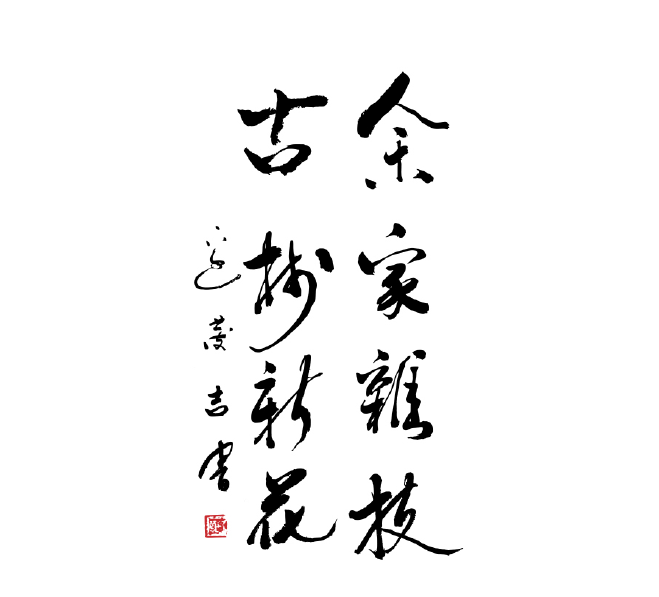 余家雜枝
古樹新花
茂吉書